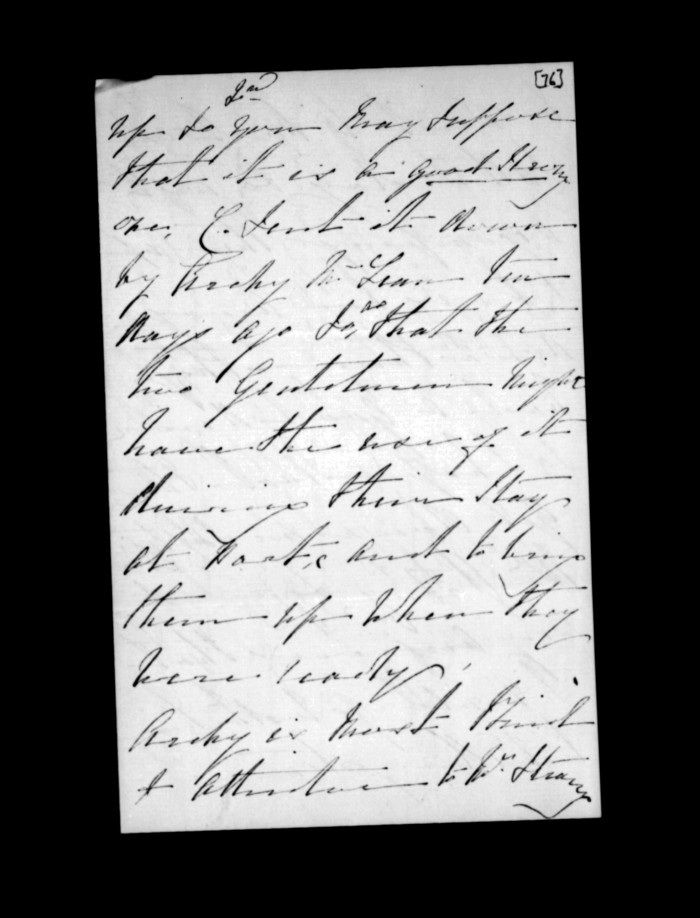 [76]
2nd
up so you may suppose
that it is a good strong
one, C. sent it down
by Archy Mc Lean ten
days ago so, that the
two Gentlemen might
have the use of it
during their stay
at Port, and to bring
them up when they
were ready,
Archy is most kind
& attentive to